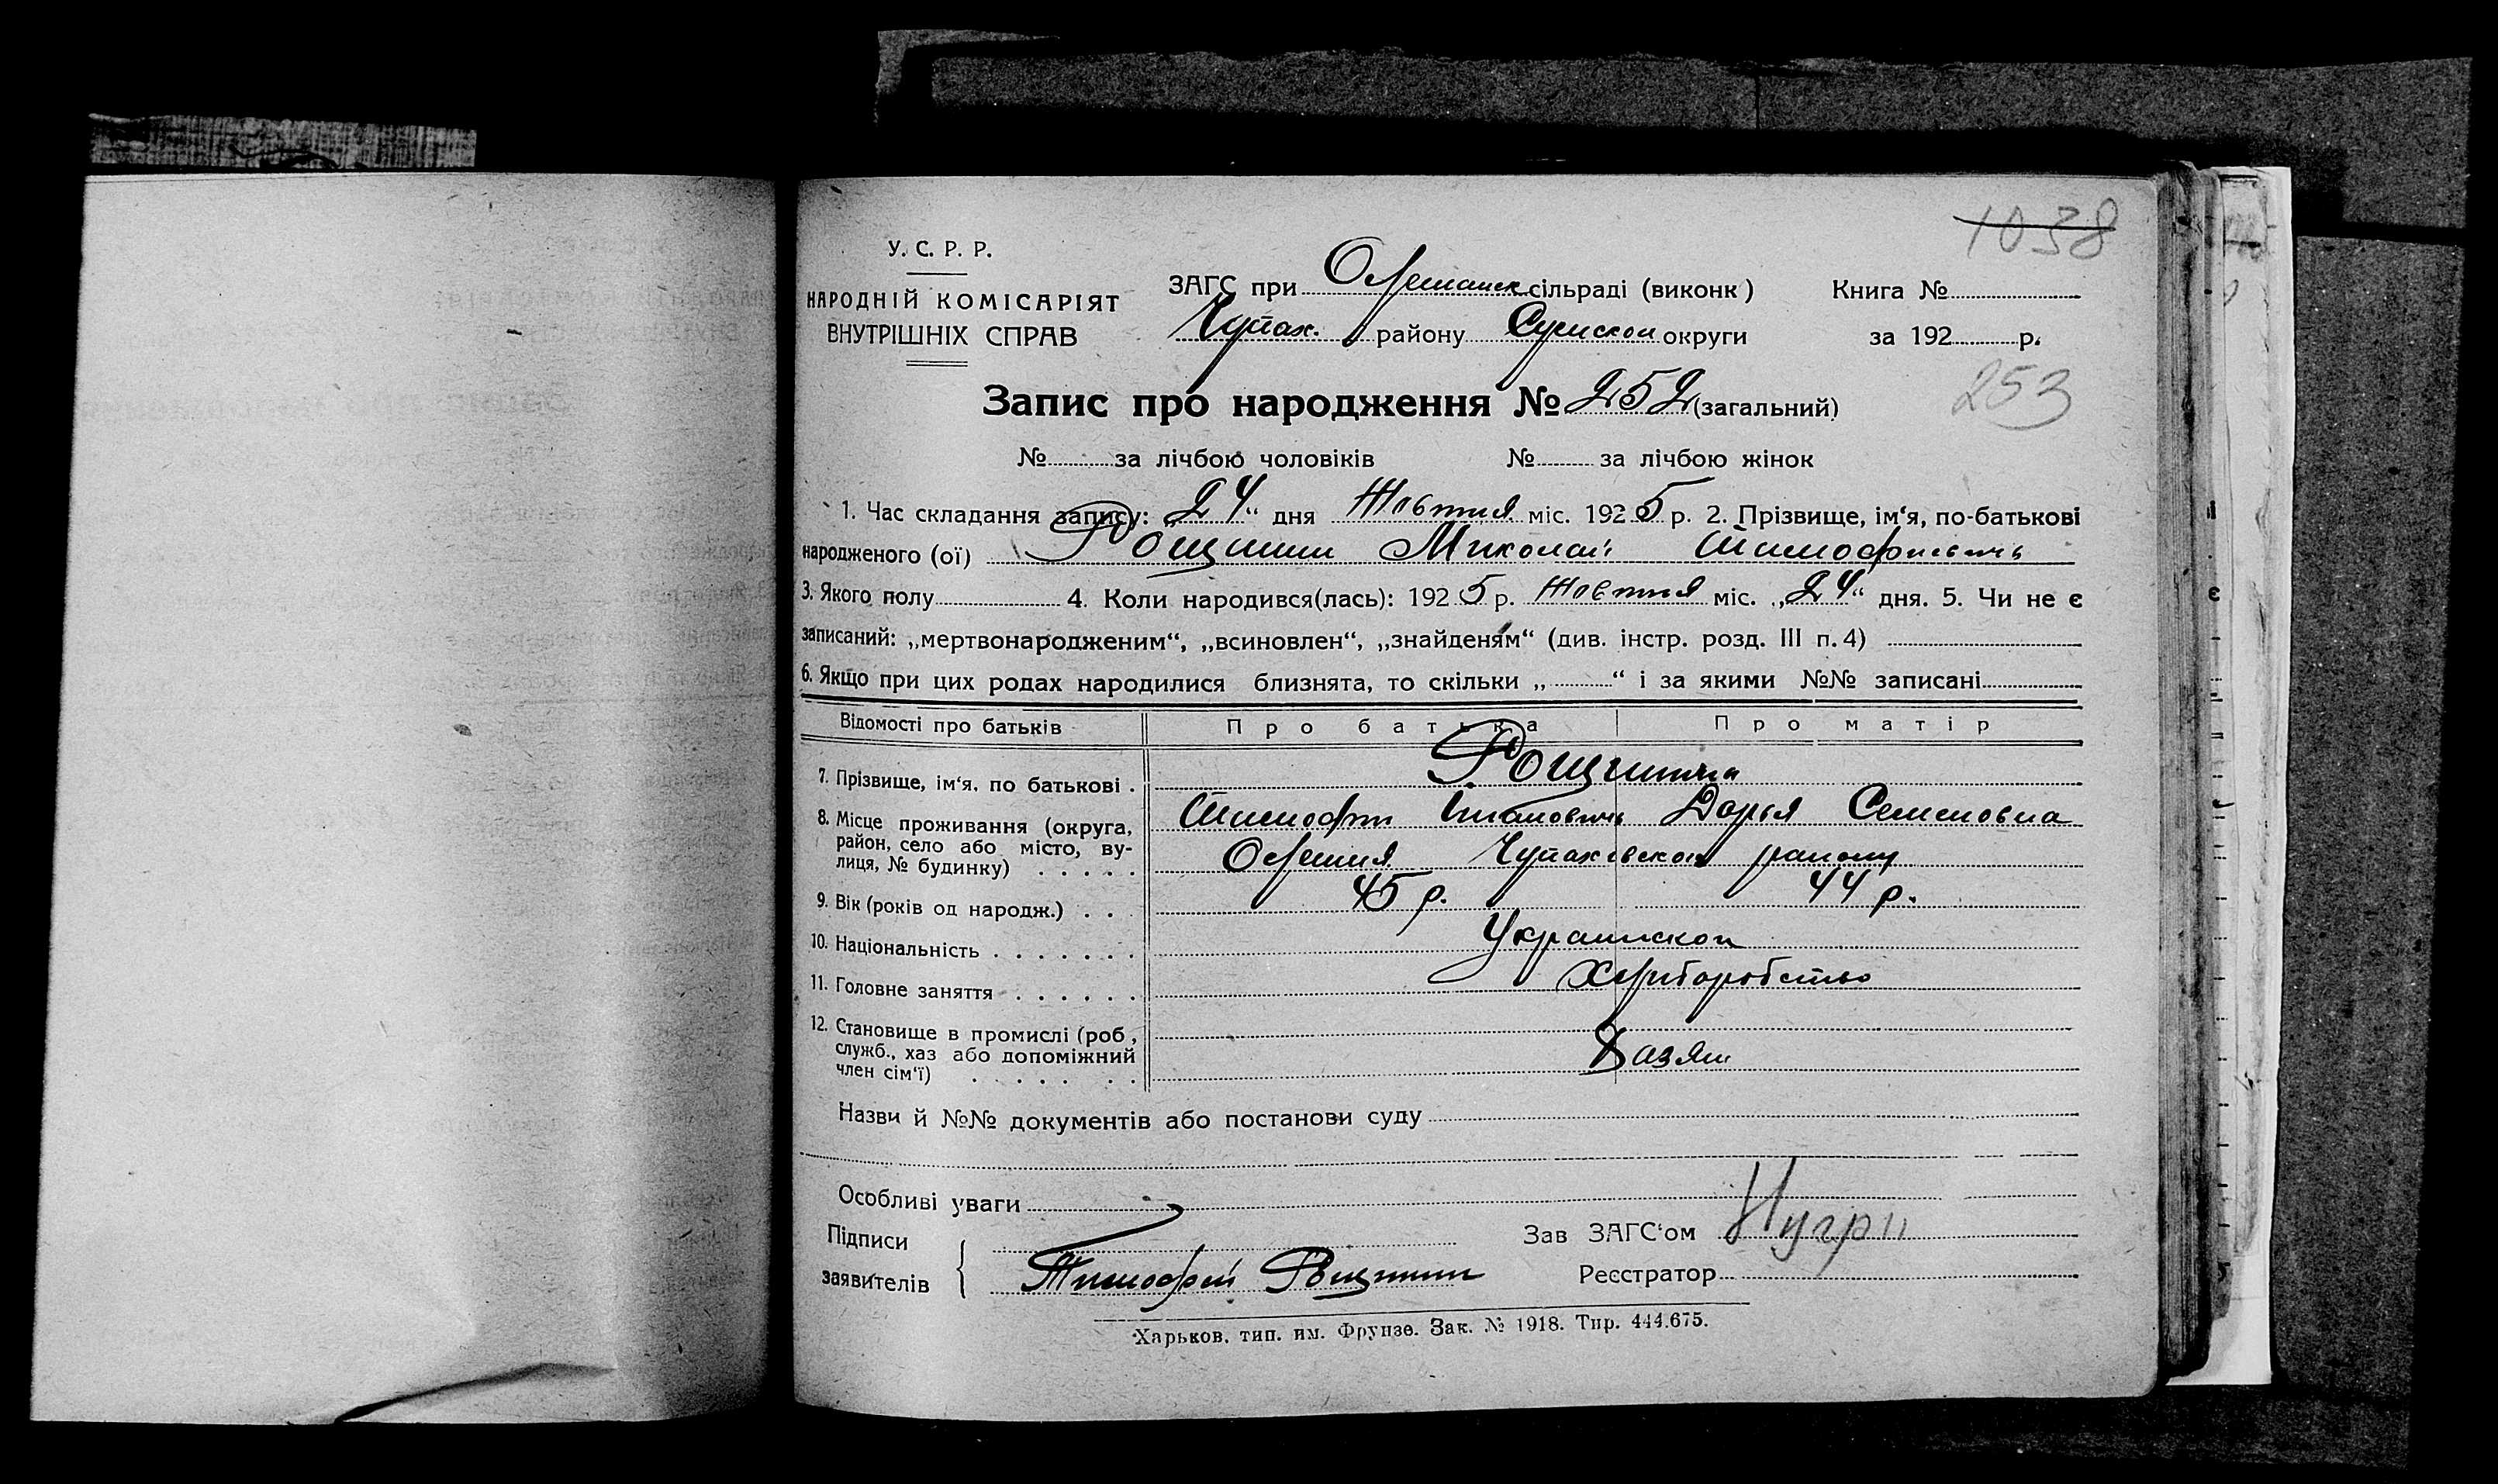 1038
У. С. Р. Р.
НАРОДНІЙ КОМІСАРІЯТ
ВНУТРІШНІХ СПРАВ
ЗАГС при Олешанск сільраді (виконк)
Чупах. району Сумской округи
Книга №
за 192 р.
Запис про народження № 252 (загальний)
253
№ за лічбою чоловіків № за лічбою жінок
1. Час складання запису: „24“ дня Жовтня міс. 1925 р. 2. Прізвище, ім‘я, по-батькові
народженого (ої) Рощипин Миколай Тимофиевичь
3. Якого полу 4. Коли народився(лась): 1925 р. Жовтня міс. „24“ дня. 5. Чи не є
записаний: „мертвонародженим“, „всиновлен“, „знайденям“ (див. інстр. розд. III п. 4)
6. Якщо при цих родах народилися близнята, то скільки „ “ і за якими №№ записані
Відомості про батьків Про батька Про матір
7. Прізвище, ім‘я, по батькові . Рощипини
8. Місце проживання (округа, район, село або місто, вулиця, № будинку) . . . . .
Тимофти Ивановичь Дарья Семеновна
Олешня Чупаховской району
9. Вік (років од народж.) . . . 45 р. 44 р.
10. Національність . . . . . . . Украинской
11. Головне заняття . . . . . . Хлиборобство
12. Становище в промислі (роб,
служб., хаз або допоміжний
член сім‘ї) . . . . . . Хазяин
Назви й №№ документів або постанови суду
Особливі уваги
Підписи
заявителів
Тимофей Рощипин
Зав ЗАГС‘ом
Реєстратор
Харьков, тип. им. Фрунзе. Зак. № 1918. Тир. 444.675.